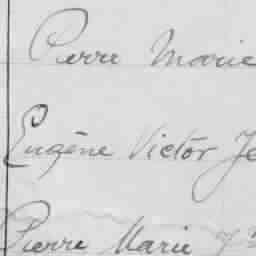 Pierre Marie
Eugène Victor Je
Pierre Marie